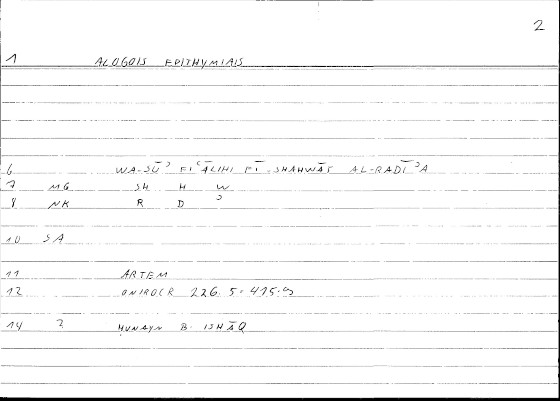 2
1 ALOGOIS EPITHYMIAIS
6 WA-SŪʾ FIʿĀLIHI FĪ -SHAHWĀT AL-RADĪʾA
7 MG SH H W
8 NK R D ʾ
10 SA
11 ARTEM
12 ONIROCR 226. 5 = 415.9
14 2 ḤUNAYN B. ISḤĀQ